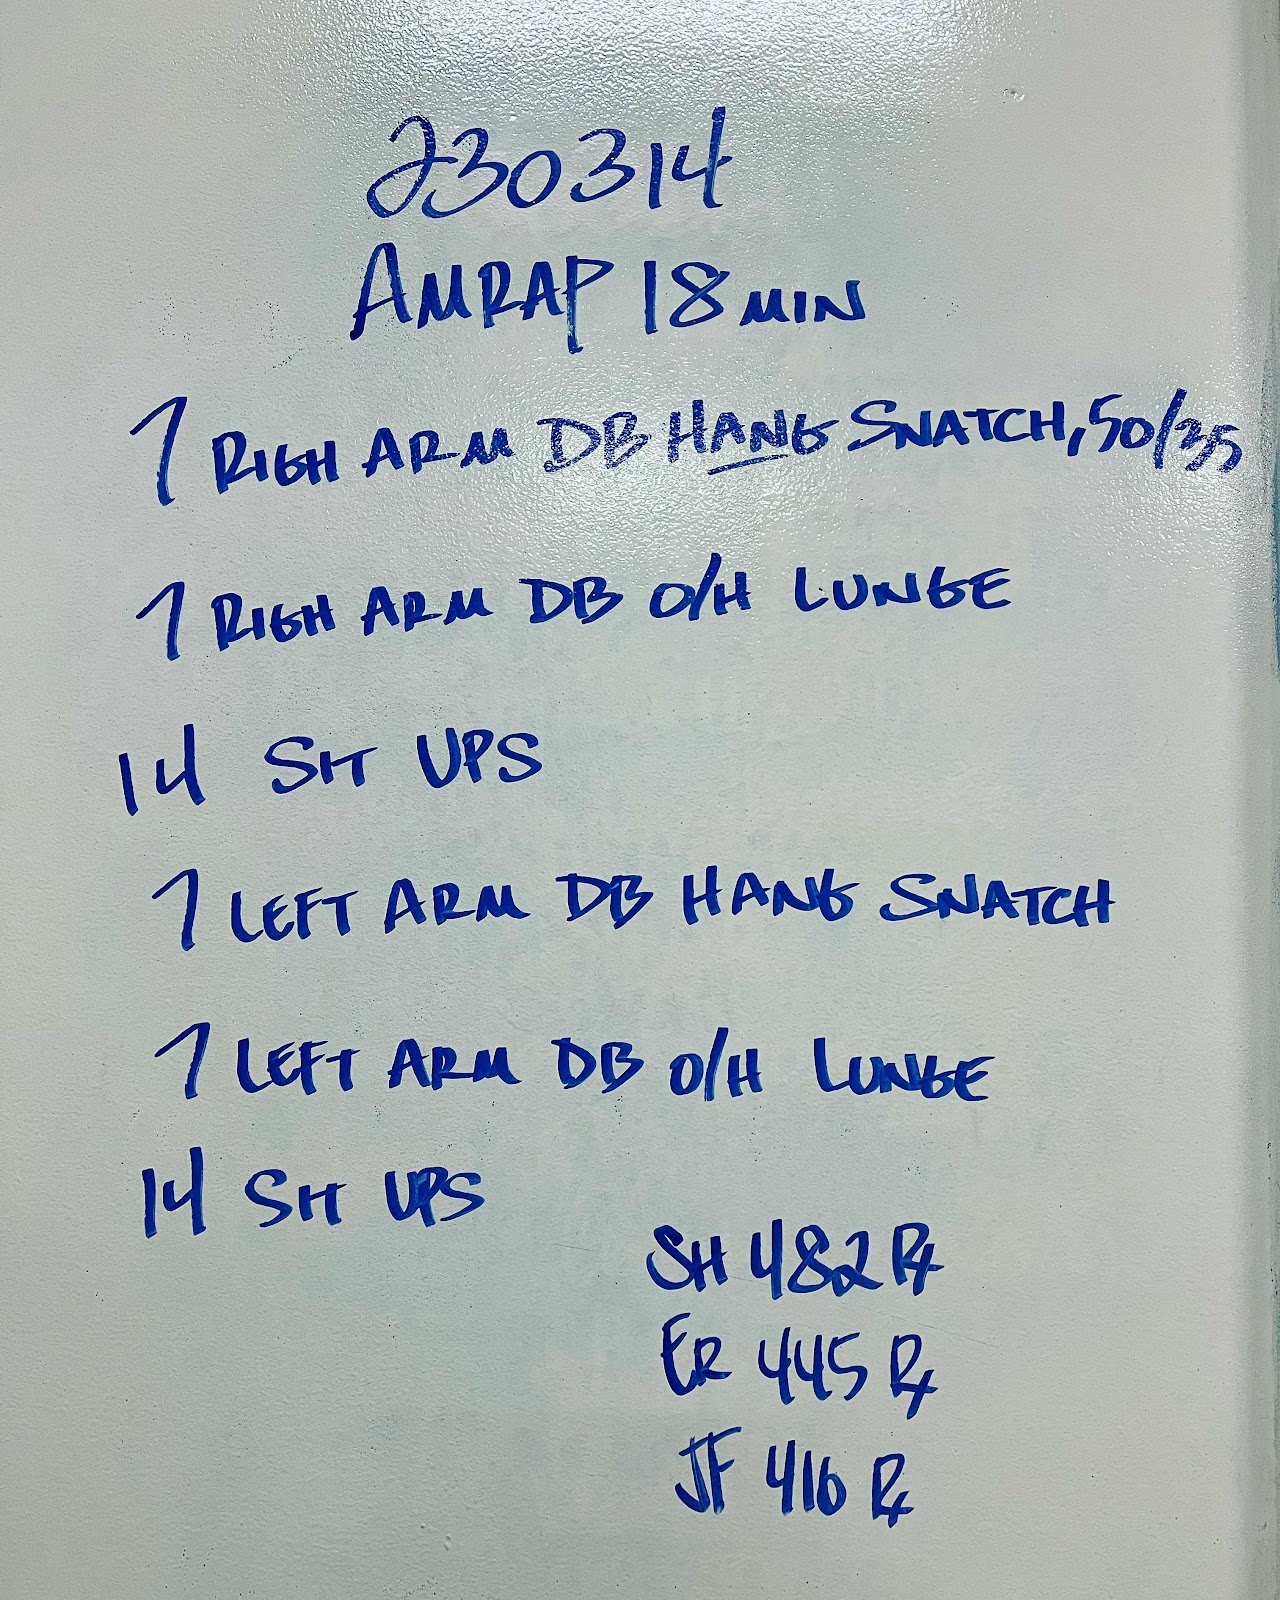 230314
AMRAP 18 MIN
7 RIGH ARM DB HANG SNATCH, 50/35
7 RIGH ARM DB O/H LUNGE
14 SIT UPS
7 LEFT ARM DB HANG SNATCH
7 LEFT ARM DB O/H LUNGE
14 SIT UPS
SH 482 Rx
ER 445 Rx
JF 416 Rx